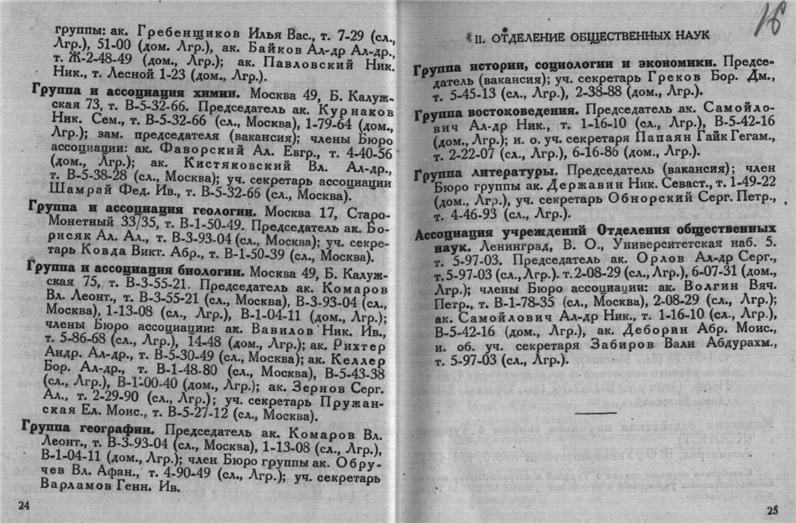 группы: ак. Гребенщиков Илья Вас., т. 7-29 (сл.,
Лгр.), 51-00 (дом. Лгр.), ак. Байков Ал-др Ал-др.,
т. Ж-2-48-49 (дом., Лгр.); ак. Павловский Ник.
Ник., т. Лесной 1-23 (дом., Лгр.).
Группа и ассоциация химии. Москва 49, Б. Калуж-
ская 73, т. В-5-32-66. Председатель ак. Курнаков
Ник. Сем., т. В-5-32-66 (сл., Москва), 1-79-64 (дом.,
Лгр.); зам. председателя (вакансия); члены Бюро
ассоциации: ак. Фаворский Ал. Евгр., т. 4-40-56
(дом., Лгр.); ак. Кистяковский Вл. Ал-др.,
т. В-5-38-28 (сл., Москва); уч. секретарь ассоциации
Шамрай Фед. Ив., т. В-5-32-66 (сл., Москва).
Группа и ассоциация геологии. Москва 17, Старо-
Монетный 33/35, т. В-1-50-49. Председатель ак. Бо-
рисяк Ал. Ал., т. В-3-93-04 (сл., Москва); уч. секре-
тарь Ковда Викт. Абр., т. В-1-50-39 (сл., Москва).
Группа и ассоциация биологии. Москва 49, Б. Калуж-
ская 75, т. В-3-55-21. Председатель ак. Комаров
Вл. Леонт., т. В-3-55-21 (сл., Москва), В-3-93-04 (сл.,
Москва), 1-13-08 (сл., Лгр.), В-1-04-11 (дом., Лгр.);
члены Бюро ассоциации: ак. Вавилов Ник. Ив.,
т. 5-86-68 (сл., Лгр.), 14-48 (дом., Лгр.); ак. Рихтер
Андр. Ал-др., т. В-5-30-49 (сл., Москва); ак. Келлер
Бор. Ал-др., т. В-1-48-80 (сл., Москва), В-5-43-38
(сл., Лгр.), В-1-00-40 (дом., Лгр.); ак. Зернов Серг.
Ал., т. 2-29-90 (сл., Лгр.); уч. секретарь Пружан-
ская Ел. Моис., т. В-5-27-12 (сл., Москва).
Группа географии. Председатель ак. Комаров Вл.
Леонт., т. В-3-93-04 (сл., Москва), 1-13-08 (сл., Лгр.),
В-1-04-11 (дом., Лгр.); член Бюро группы ак. Обру-
чев Вл. Афан., т. 4-90-49 (сл., Лгр.); уч. секретарь
Варламов Генн. Ив.
24
16
II. ОТДЕЛЕНИЕ ОБЩЕСТВЕННЫХ НАУК
Группа истории, социологии и экономики. Предсе-
датель (вакансия); уч. секретарь Греков Бор. Дм.,
т. 5-45-13 (сл., Лгр.), 2-38-88 (дом., Лгр.).
Группа востоковедения. Председатель ак. Самойло-
вич Ал-др Ник., т. 1-16-10 (сл., Лгр.), В-5-42-16
(дом., Лгр.); и. о. уч. секретаря Папаян Гайк Гегам.,
т. 2-22-07 (сл., Лгр.), 6-16-86 (дом., Лгр.).
Группа литературы. Председатель (вакансия); член
Бюро группы ак. Державин Ник. Севаст., т. 1-49-22
(дом., Лгр.), уч. секретарь Обнорский Серг. Петр.,
т. 4-46-93 (сл., Лгр.).
Ассоциация учреждений Отделения общественных
наук. Ленинград, В. О., Университетская наб. 5.
т. 5-97-03. Председатель ак. Орлов Ал-др Серг.,
т. 5-97-03 (сл., Лгр.). т. 2-08-29 (сл., Лгр.), 6-07-31 (дом.,
Лгр.); члены Бюро ассоциации: ак. Волгин Вяч.
Петр., т. В-1-78-35 (сл., Москва), 2-08-29 (сл., Лгр.);
ак. Самойлович Ал-др Ник., т. 1-16-10 (сл., Лгр.),
В-5-42-16 (дом., Лгр.), ак. Деборин Абр. Моис.,
и. об. уч. секретаря Забиров Вали Абдурахм.,
т. 5-97-03 (сл., Лгр.).
25